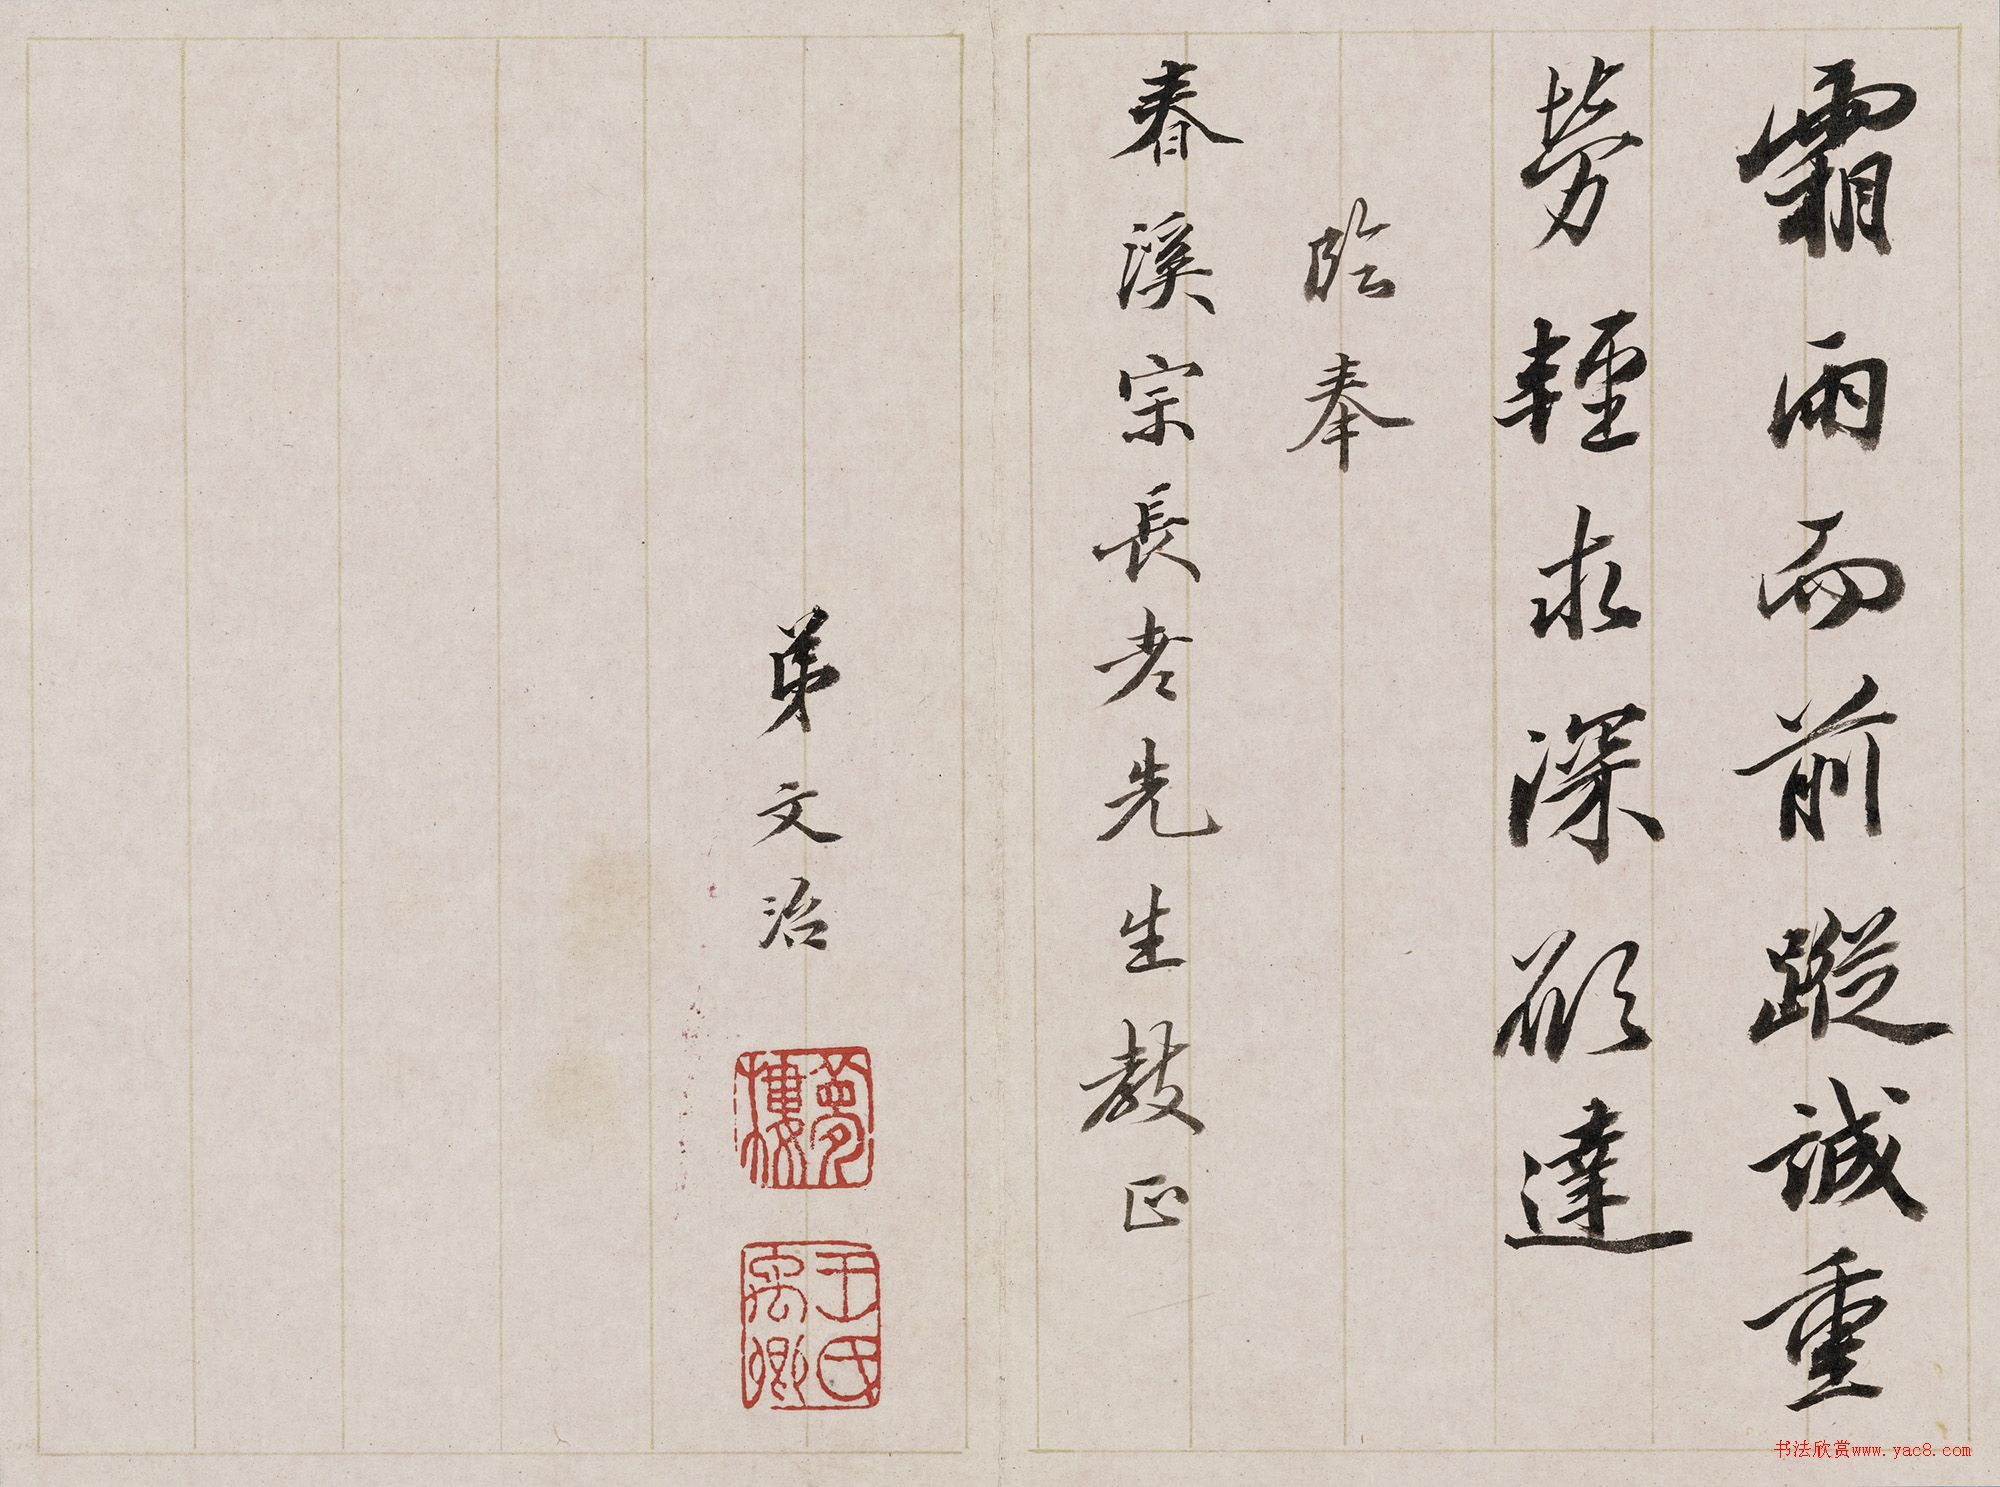 霜雨而前蹤誠重
勞輕求深願達
臨奉
春溪宗長老先生教正
弟文治
夢樓
王氏禹卿
书法欣赏www.yac8.com